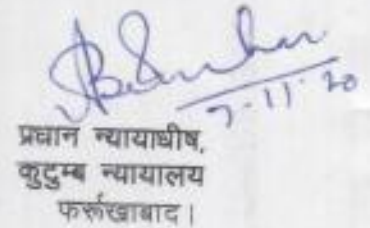 7-11-20
प्रधान न्यायाधीष,
कुटुम्ब न्यायालय
फर्रूखाबाद।